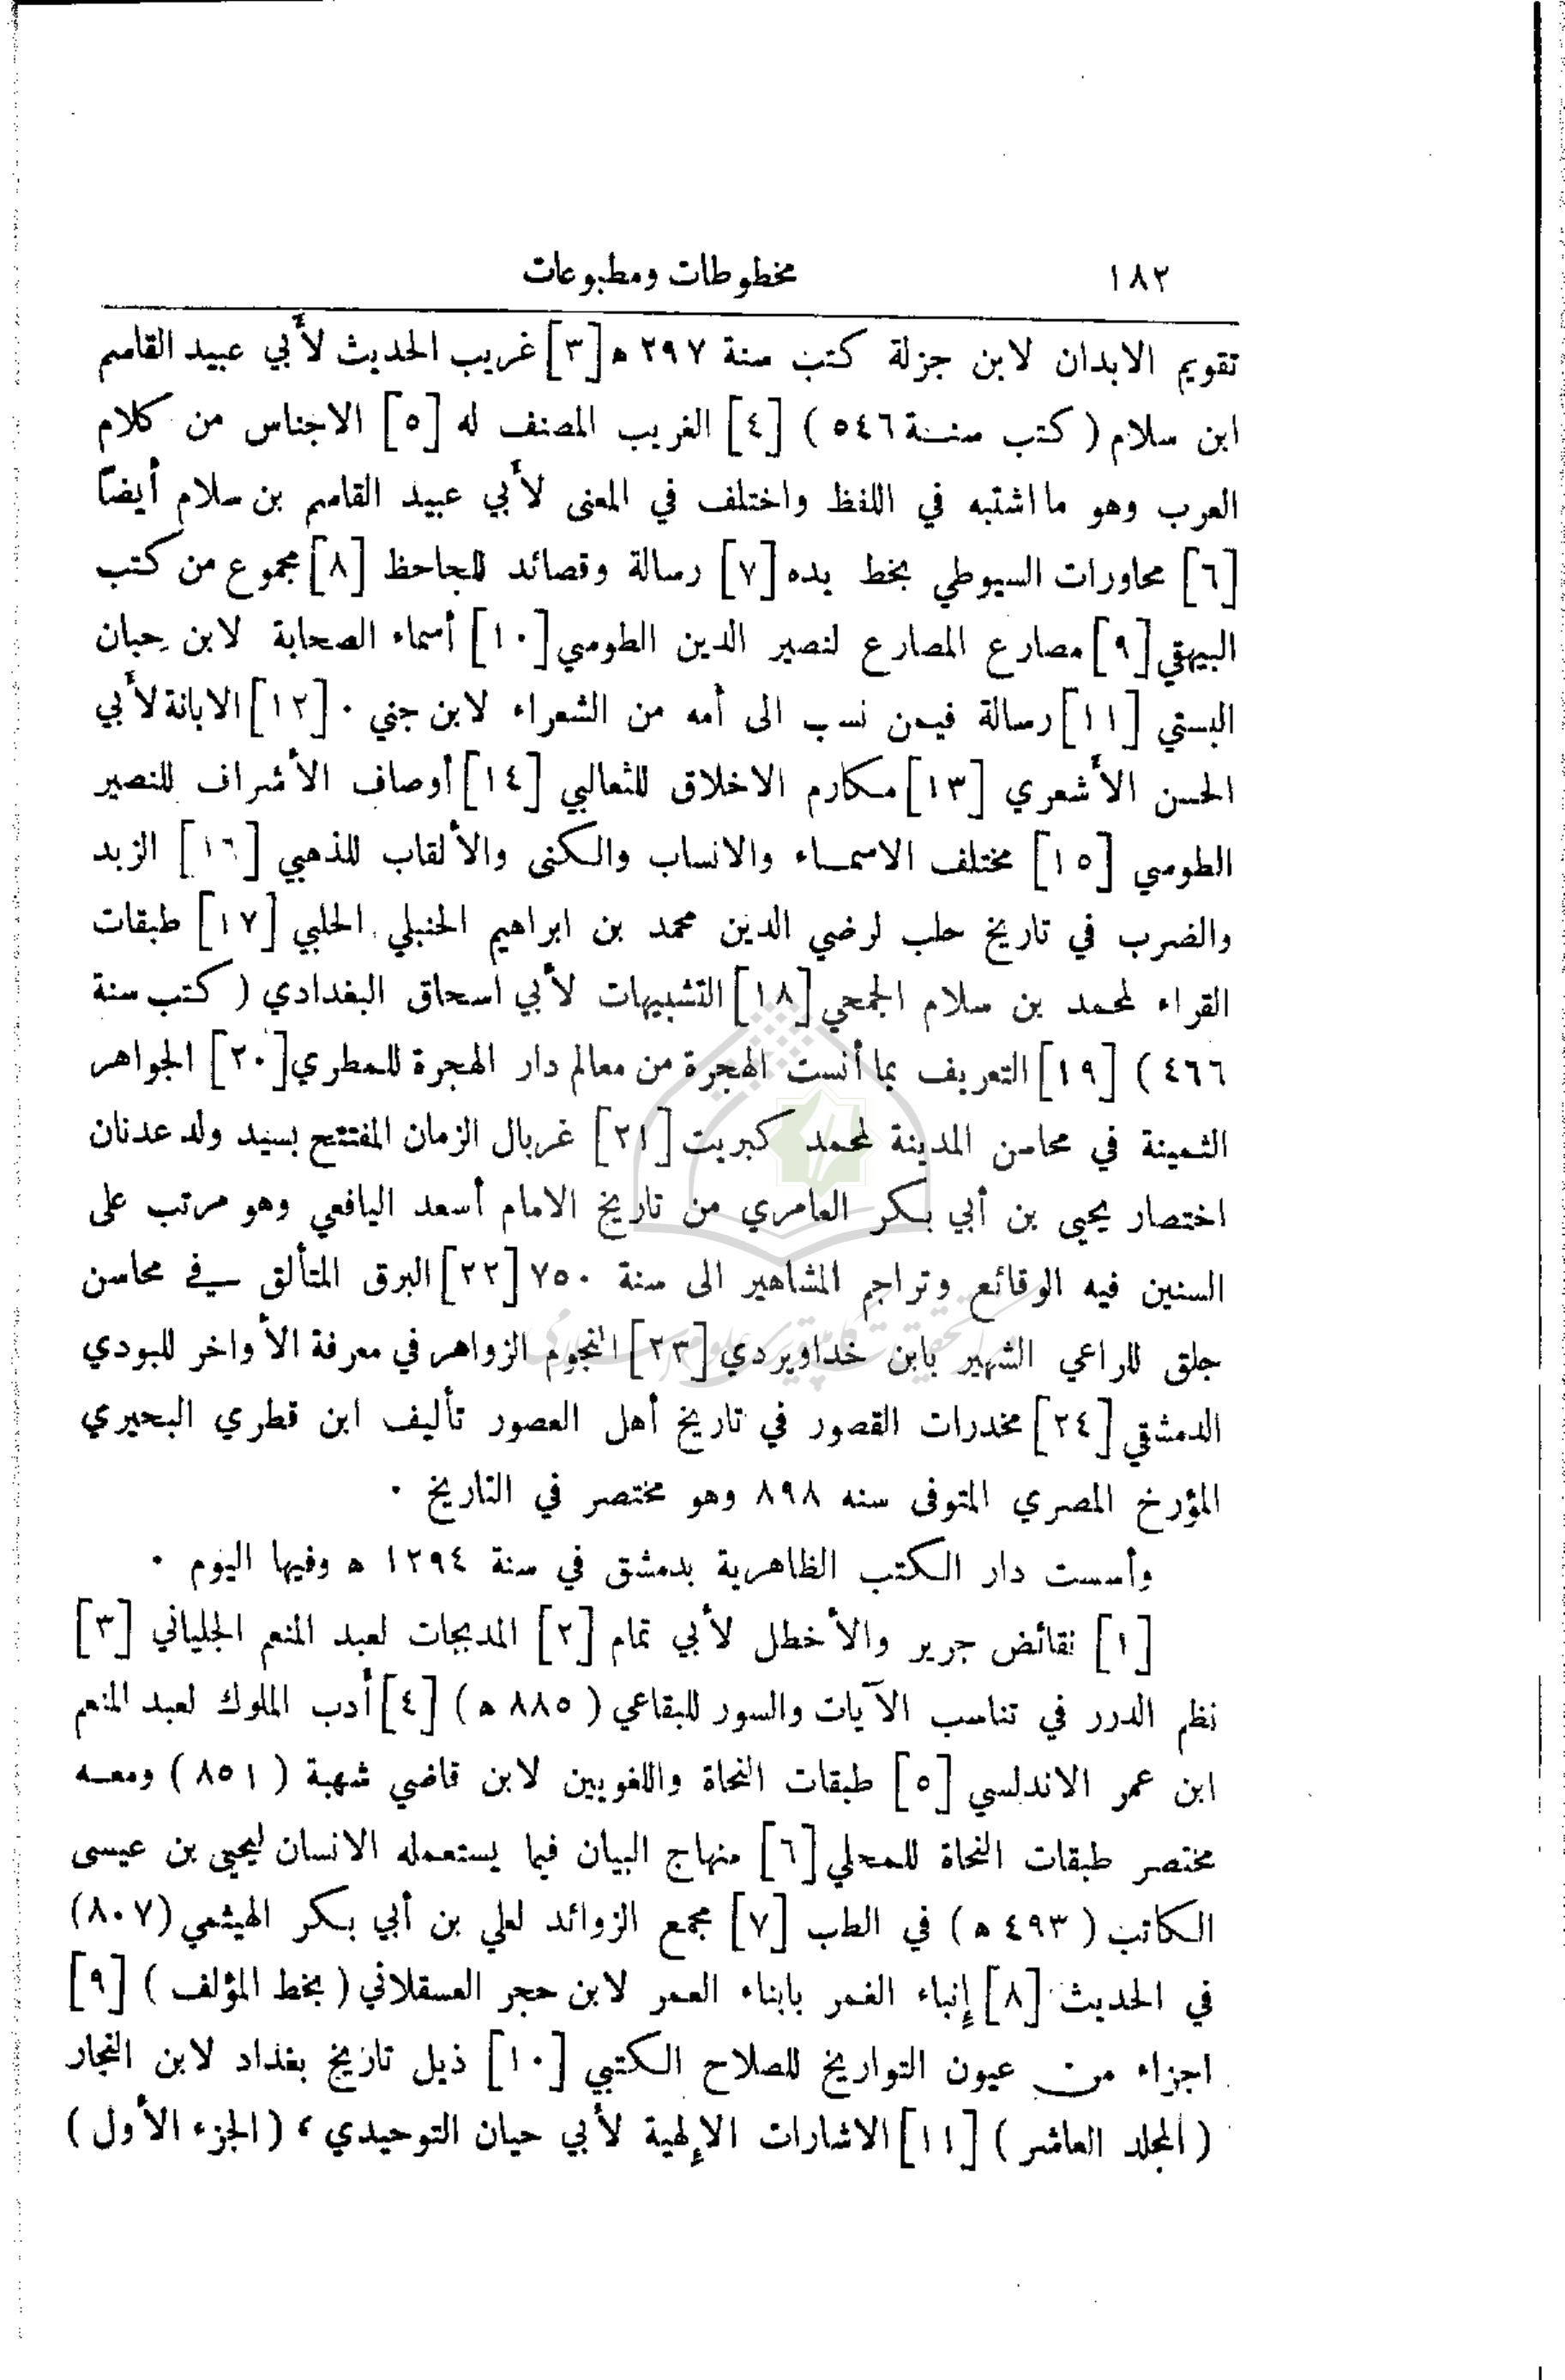 ١٨٢ مخطوطات ومطبوعات
تقويم الابدان لابن جزلة كتب سنة ٢٩٧ ه [٣] غريب الحديث لأبي عبيد القاسم
ابن سلام ( كتب سنة ٥٤٦ ) [٤] الغريب المصنف له [٥] الاجناس من كلام
العرب وهو ما اشتبه في اللفظ واختلف في المعنى لأبي عبيد القاسم بن سلام أيضاً
[٦] محاورات السيوطي بخط يده [٧] رسالة وقصائد للجاحظ [٨] مجموع من كتب
البيهقي [٩] مصارع المصارع لنصير الدين الطوسي [١٠] أسماء الصحابة لابن حِبان
البستي [١١] رسالة فيمن نسب الى أمه من الشعراء لابن جني ٠ [١٢] الابانة لأبي
الحسن الأشعري [١٣] مكارم الاخلاق للثعالبي [١٤] أوصاف الأشراف للنصير
الطوسي [١٥] مختلف الاسماء والانساب والكنى والألقاب للذهبي [١٦] الزبد
والضرب في تاريخ حلب لرضي الدين محمد بن ابراهيم الحنبلي الحلبي [١٧] طبقات
القراء لمحمد بن سلام الجمحي [١٨] التشبيهات لأبي اسحاق البغدادي ( كتب سنة
٤٦٦ ) [١٩] التعريف بما أنست الهجرة من معالم دار الهجرة للمطري [٢٠] الجواهر
الثمينة في محاسن المدينة لمحمد كبريت [٢١] غربال الزمان المفتتح بسيد ولد عدنان
اختصار يحيى بن أبي بكر العامري من تاريخ الامام أسعد اليافعي وهو مرتب على
السنين فيه الوقائع وتراجم المشاهير الى سنة ٧٥٠ [٢٢] البرق المتألق في محاسن
جلق للراعي الشهير بابن خداويردي [٢٣] النجوم الزواهر في معرفة الأواخر للبودي
الدمشقي [٢٤] مخدرات القصور في تاريخ أهل العصور تأليف ابن قطري البحيري
المؤرخ المصري المتوفى سنه ٨٩٨ وهو مختصر في التاريخ ٠
وأسست دار الكتب الظاهرية بدمشق في سنة ١٢٩٤ ه وفيها اليوم ٠
[١] نقائض جرير والأخطل لأبي تمام [٢] المدبجات لعبد المنعم الجلياني [٣]
نظم الدرر في تناسب الآيات والسور للبقاعي ( ٨٨٥ ه ) [٤] أدب الملوك لعبد المنعم
ابن عمر الاندلسي [٥] طبقات النحاة واللغويين لابن قاضي شهبة ( ٨٥١ ) ومعه
مختصر طبقات النحاة للمحلي [٦] منهاج البيان فيما يستعمله الانسان ليحيى بن عيسى
الكاتب ( ٤٩٣ ه ) في الطب [٧] مجمع الزوائد لعلي بن أبي بكر الهيثمي (٨٠٧)
في الحديث [٨] إنباء الغمر بابناء العمر لابن حجر العسقلاني ( بخط المؤلف ) [٩]
اجزاء من عيون التواريخ للصلاح الكتبي [١٠] ذيل تاريخ بغداد لابن النجار
( المجلد العاشر ) [١١] الاشارات الإلهية لأبي حيان التوحيدي ، ( الجزء الأول )